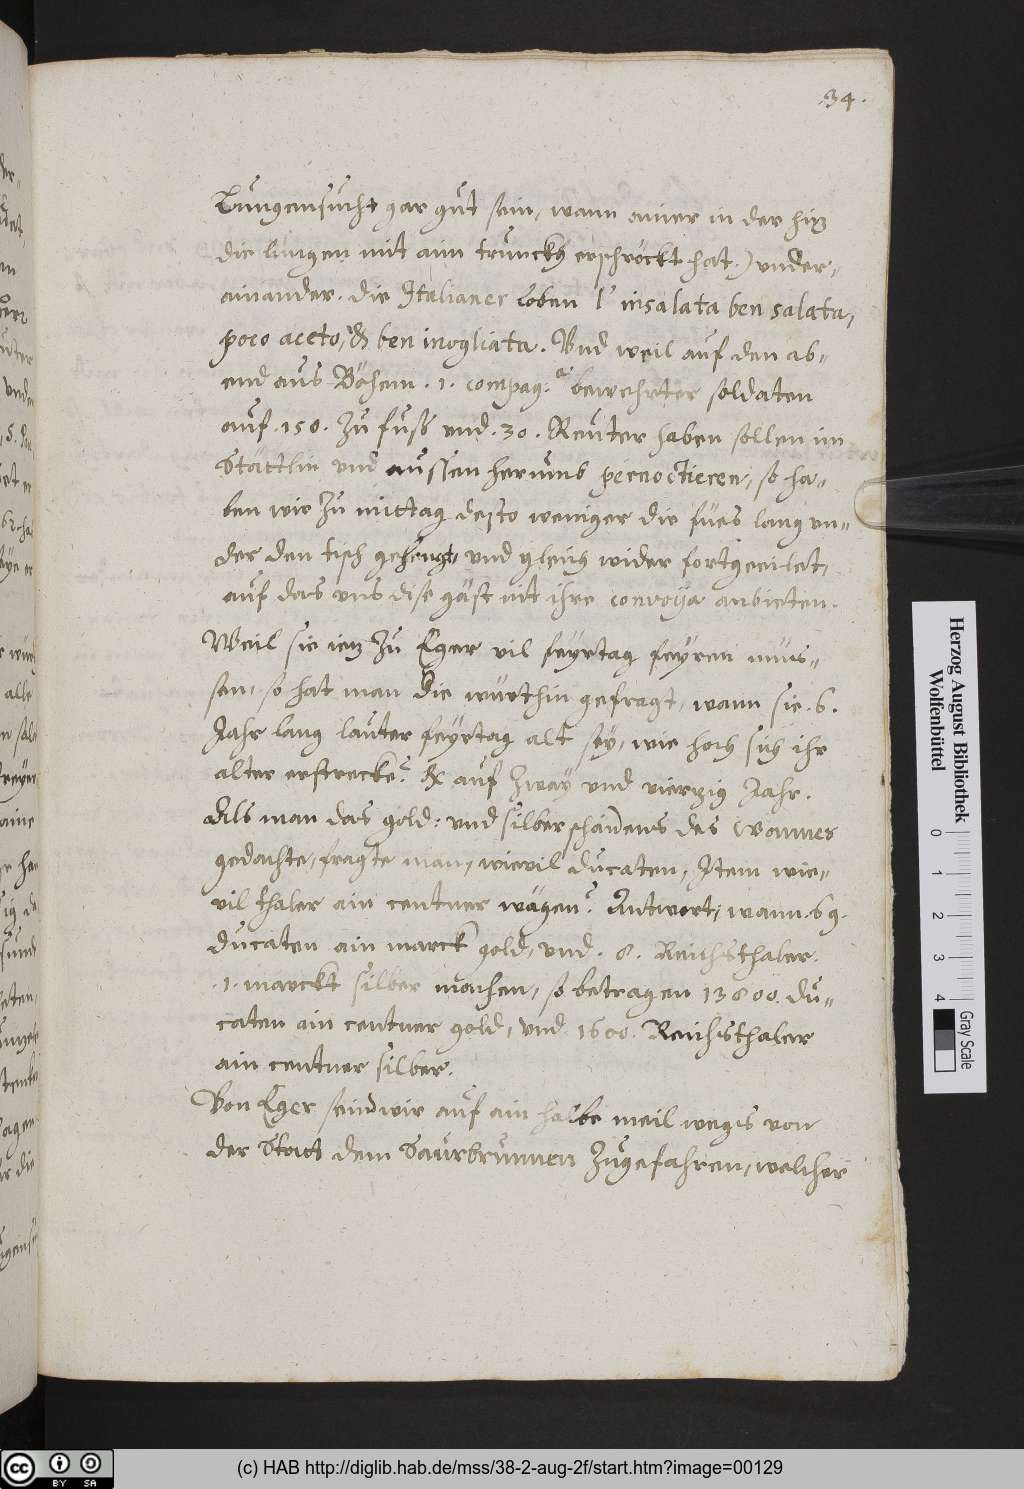 .34.
Lungensucht gar gut sein, wann einer in der hiz
die lungen mit aim trunckh erschröckt hat.) under,
ainander. die Italianer loben l' insalata ben salata,
poco aceto, & ben inogliata. Und weil auf den ab=
end aus Böhem .1. compag: bewehrter soldaten
auf .150. zu fuß und .30. Reuter haben sollen im
Stättlin und aussen herumb pernoctieren, so ha=
ben wir zu mittag desto weniger die fües lang un=
der den tisch gehengt, und gleich wider fortgeeilet,
auf das uns dise gäst nit ihre convoya anbieten.
Weil sie iez zu Eger vil feyrtag feyren müs=
sen, so hat man die würthin gefragt, wann sie .6.
Jahr lang lauter feyrtag alt sey, wie hoch sich ihr
alter erstrecke? & auf zway und vierzig Jahr.
Als man das gold: und silber schändens des
gedachte, fragte man, wievil ducaten, Item wie=
vil thaler ain centner wägen? Antwort, wann .69.
ducaten ain marck gold, und .8. Reichsthaler
.1. marckt silber machen, so betragen 13800. du=
caten ain centner gold, und 1600. Reichsthaler
ain centner silber.
Von Eger seind wir auf ain halbe meil wegs von
der Statt dem Saurbrunnen zugefahren, welcher
Herzog August Bibliothek
Wolfenbüttel
0 1 2 3 4
Gray Scale
(c) HAB http://diglib.hab.de/mss/38-2-aug-2f/start.htm?image=00129
cc BY SA